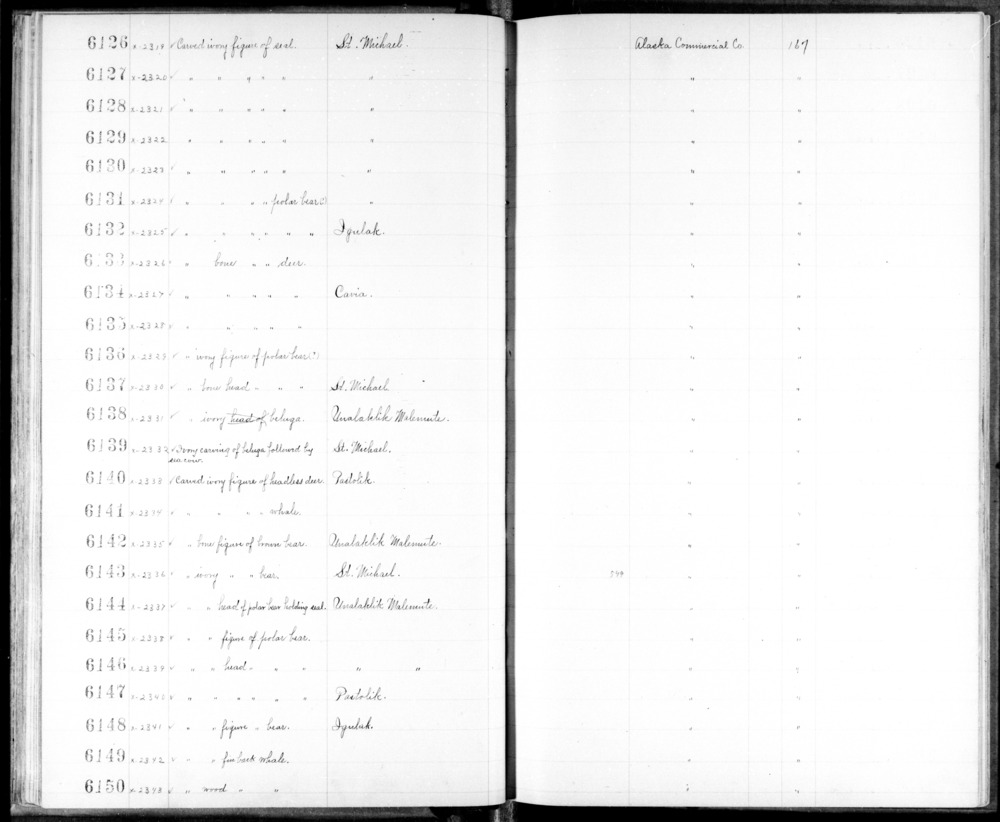 6126 x-2319 ✓ Carved ivory figure of seal. St. Michael. Alaska Commercial Co. 187
6127 x-2320 ✓ " " " " " " " "
6128 x-2321 ✓ " " " " " " " "
6129 x-2322 " " " " " " " "
6130 x-2323 ✓ " " " " " " " "
6131 x-2324 ✓ " " " " polar bear (?) " " "
6132 x-2325 ✓ " " " " " " Igulak. " "
6133 x-2326 ✓ " bone " " deer. " "
6134 x-2327 ✓ " " " " " Cavia. " "
6135 x-2328 ✓ " " " " " " "
6136 x-2329 ✓ " ivory figure of polar bear (?) " "
6137 x-2330 ✓ " bone head " " " St. Michael " "
6138 x-2331 ✓ " ivory head of beluga. Unalaklik Malemute. " "
6139 x-2332 ✓ Ivory carving of beluga followed by St. Michael. " "
sea cow.
6140 x-2333 ✓ Carved ivory figure of headless deer. Pastolik. " "
6141 x-2334 ✓ " " " " whale. " "
6142 x-2335 ✓ " bone figure of brown bear. Unalaklik Malemute. " "
6143 x-2336 ✓ " ivory " " bear. St. Michael. 599 " "
6144 x-2337 ✓ " " head of polar bear holding seal. Unalaklik Malemute. " "
6145 x-2338 ✓ " " figure of polar bear. " "
6146 x-2339 ✓ " " head " " " " " " "
6147 x-2340 ✓ " " " " " " Pastolik. " "
6148 x-2341 ✓ " " figure " bear. Igulak. " "
6149 x-2342 ✓ " " fin back whale. " "
6150 x-2343 ✓ " wood " " " "